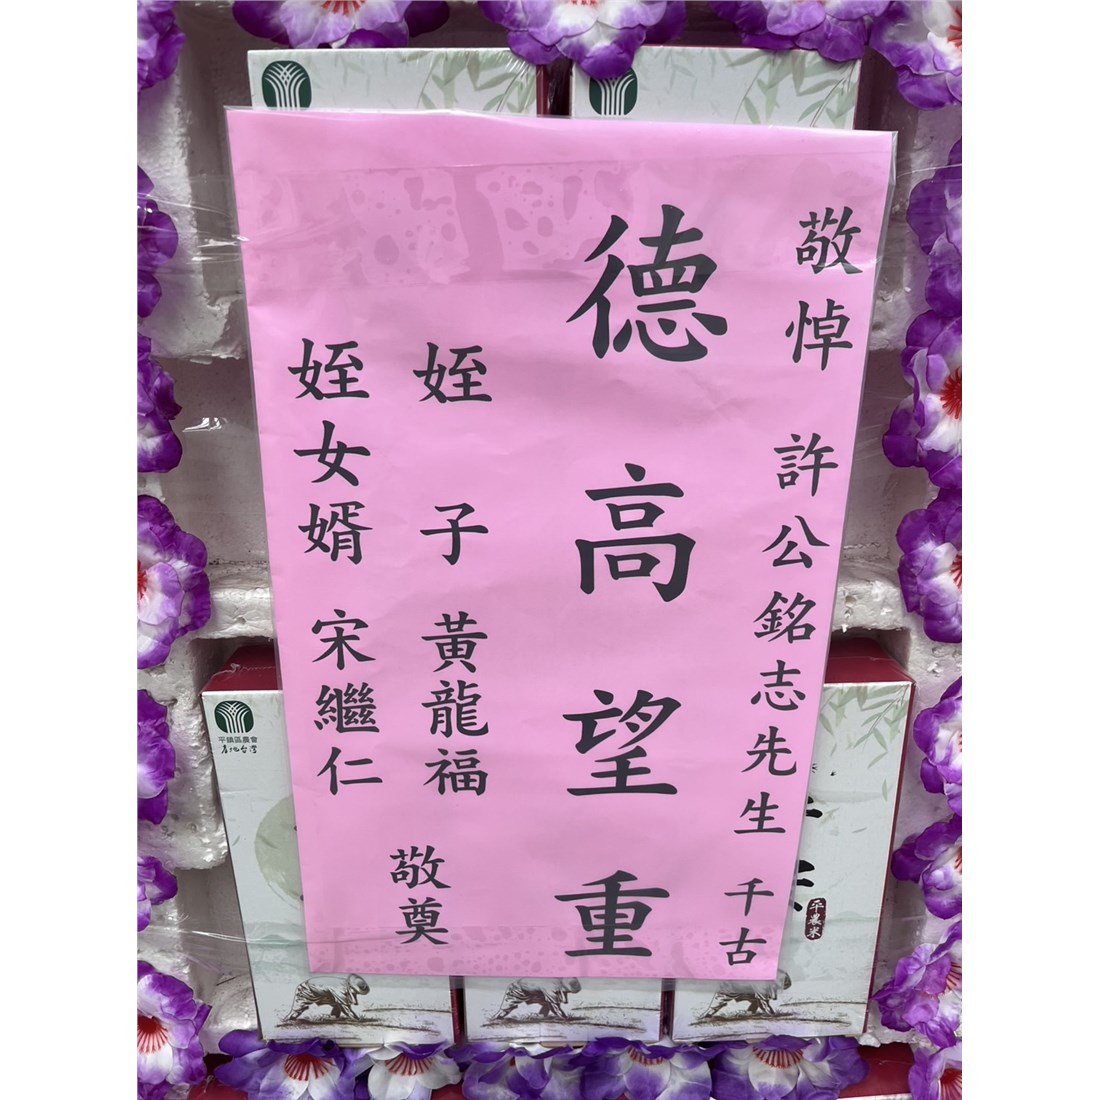 敬悼 許公銘志先生 千古
德高望重
姪子 黃龍福
姪女婿 宋繼仁
敬奠
平鎮區農會
平農米